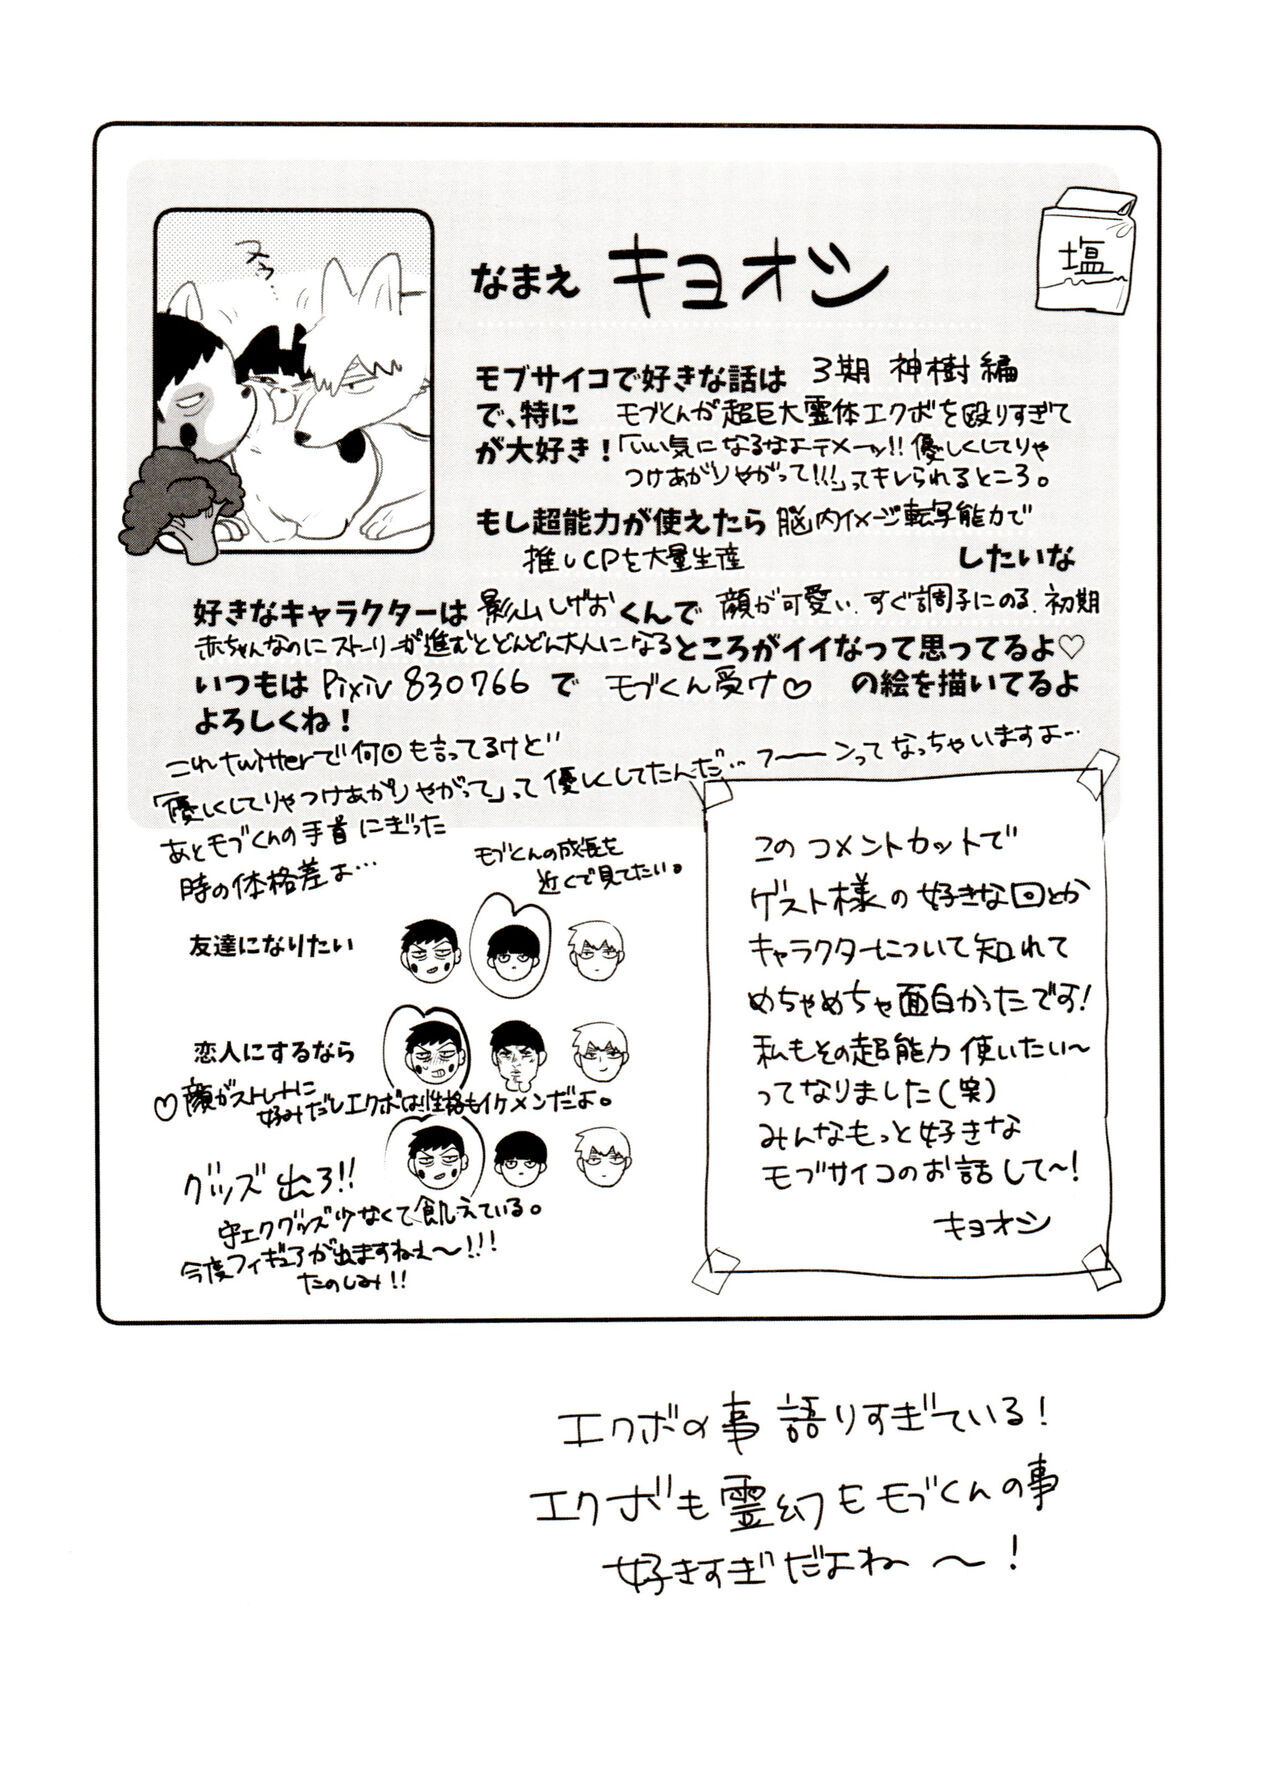 ヌゥ…
塩
なまえ キヨオシ
モブサイコで好きな話は 3期 神樹編
で、特に モブくんが超巨大霊体エクボを殴りすぎて
が大好き!「いい気になるなよテメーッ!!優しくしてりゃ
つけあがりやがって!!!」ってキレられるところ。
もし超能力が使えたら 脳内イメージ転写能力で
推しCPを大量生産 したいな
好きなキャラクターは 影山しげお くんで 顔が可愛い、すぐ調子にのる、初期
赤ちゃんなのにストーリーが進むとどんどん大人になる ところがイイなって思ってるよ♡
いつもは Pixiv 830766 で モブくん受け♡ の絵を描いてるよ
よろしくね!
これtwitterで何回も言ってるけど
「優しくしてりゃつけあがりやがって」って優しくしてたんだ… フーーンってなっちゃいますよ…
あとモブくんの手首にぎった
時の体格差よ…
モブくんの成長を
近くで見てたい。
友達になりたい
恋人にするなら
♡顔がストレートに
好みだしエクボは性格もイケメンだよ。
グッズ出ろ!!
守エクグッズ少なくて飢えている。
今度フィギュアが出ますねぇ〜!!!
たのしみ!!
このコメントカットで
ゲスト様の好きな回とか
キャラクターについて知れて
めちゃめちゃ面白かったです!
私もその超能力使いたい〜
ってなりました(笑)
みんなもっと好きな
モブサイコのお話して〜!
キヨオシ
エクボの事語りすぎている!
エクボも霊幻もモブくんの事
好きすぎだよね〜!